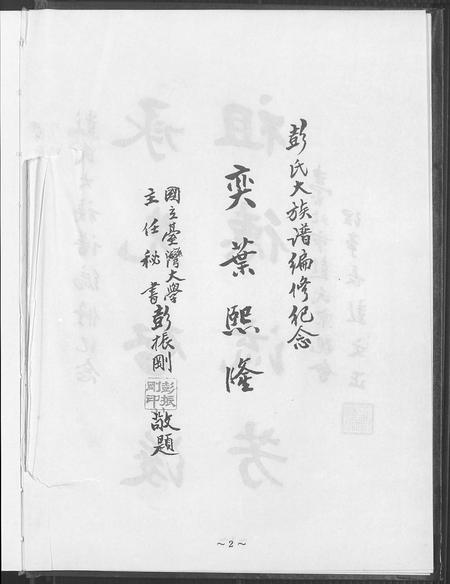 彭氏大族譜編修紀念
奕葉熙隆
國立臺灣大學
主任秘書彭振剛
彭振
剛印
敬題
~2~